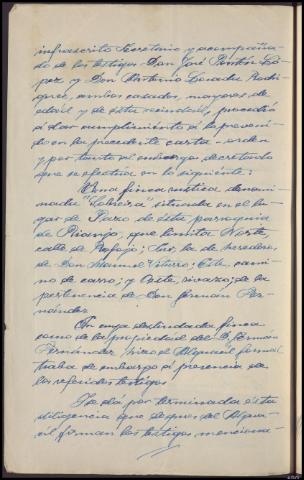 infrascrito Secretario y acompaña
do de los testigos Don José Pontón Ló-
pez y Don Antonio Losada Rodri-
guez, ambos casados, mayores de
edad y de esta vecindad, procedió
á dar cumplimiento á lo preveni-
do en la precedente carta-orden
y por tanto al embargo decretado
que se efectúa en lo siguiente:
Una finca rústica denomi-
nada situada en el lu-
gar de Pazo de ésta parroquia
de que limita Norte,
calle de Sur, la de herederos
de Don Manuel Este, cami-
no de carro; y Oeste, ribazo; de la
pertenencia de Don Germán Fer-
nández
En cuya deslindada finca
como de la propiedad del D. Germán
Fernández, hizo el Alguacil formal
traba de embargo á presencia de
los referidos testigos
Se dá por terminada ésta
diligencia que después del Algua-
cil firman los testigos menciona-